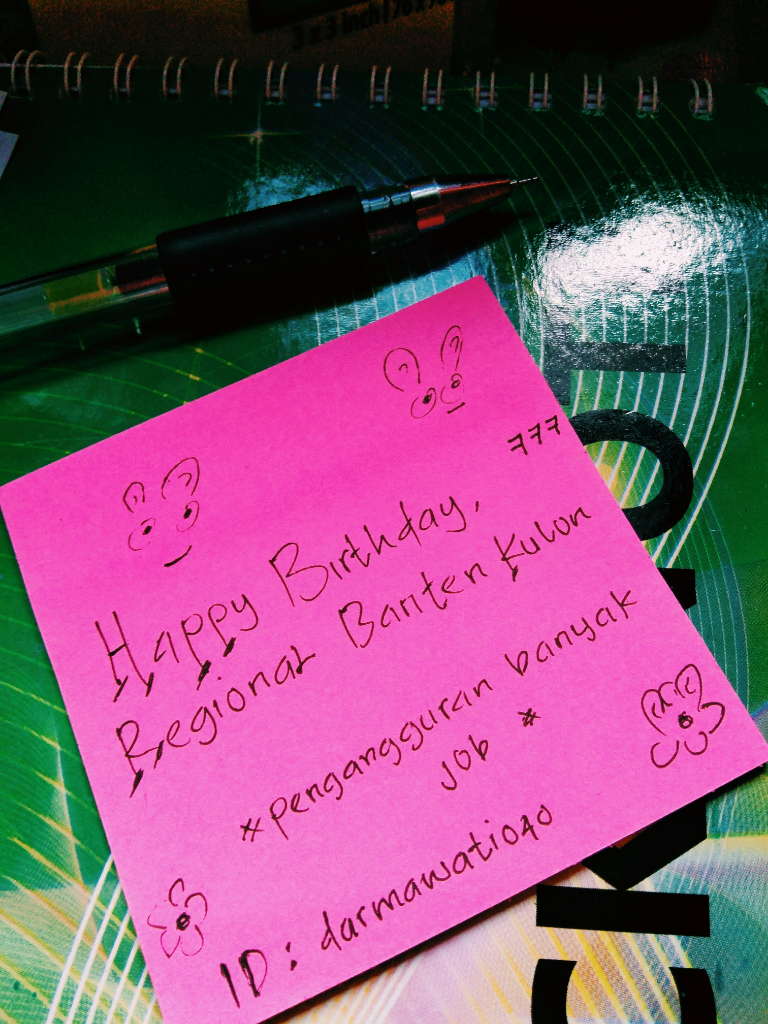 3 x 3 inch | 76 x 76
777
Happy Birthday,
Regional Banten Kulon
*pengangguran banyak
job *
ID: darmawati040